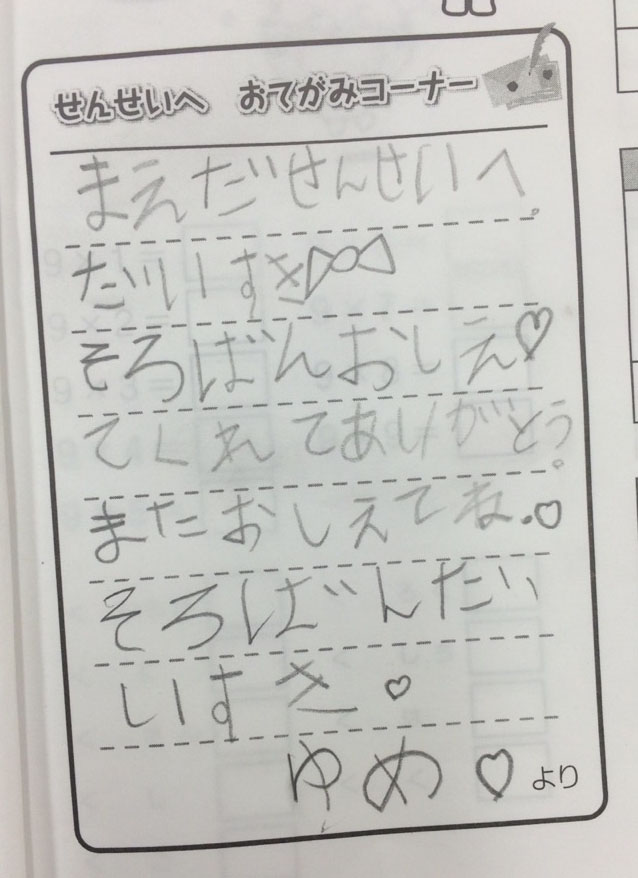 せんせいへ おてがみコーナー
まえだせんせいへ
だいすき
そろばんおしえ♡
てくれてありがとう。
またおしえてね.♡
そろばんだい
いすき♡
ゆめ♡より